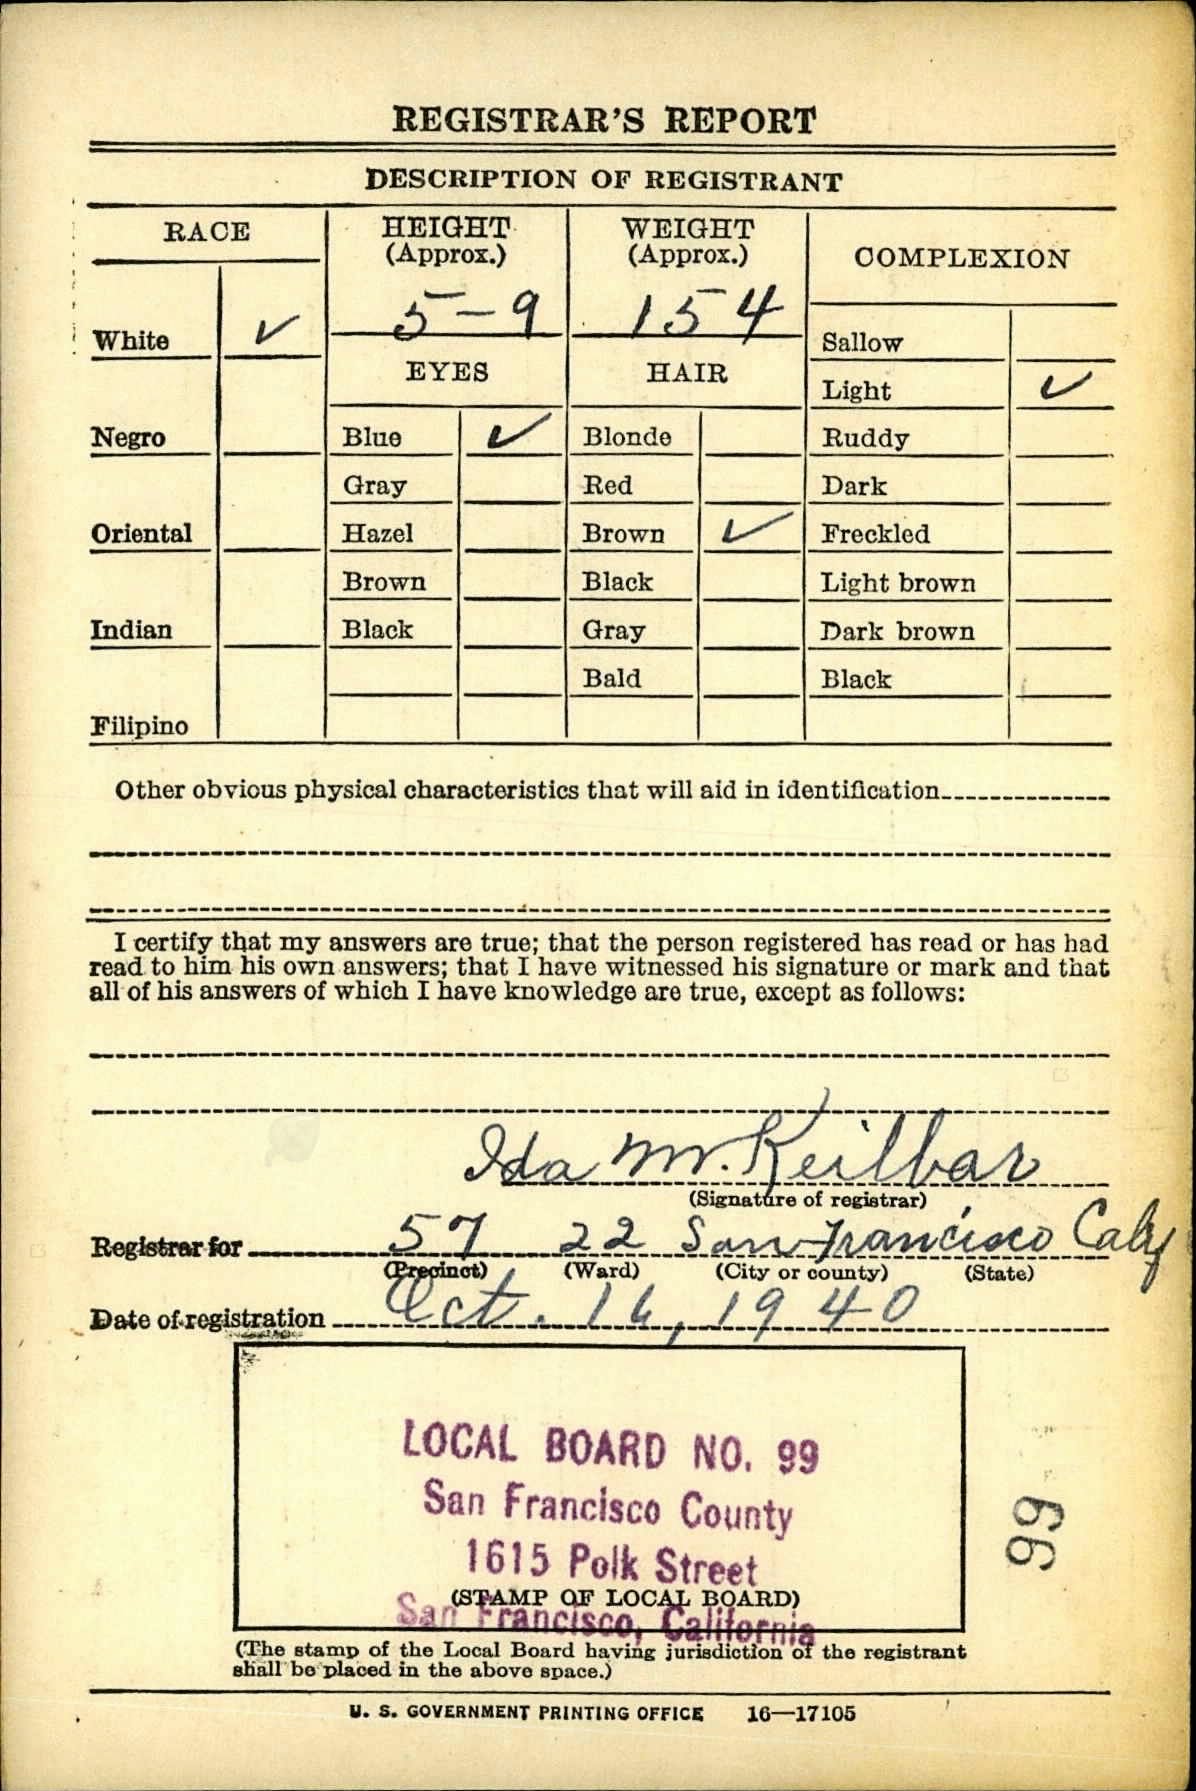 REGISTRAR'S REPORT
DESCRIPTION OF REGISTRANT
RACE
HEIGHT
(Approx.)
WEIGHT
(Approx.)
COMPLEXION
5-9
154
White ✓
EYES
HAIR
Sallow
Light ✓
Negro
Blue ✓
Blonde
Ruddy
Gray
Red
Dark
Oriental
Hazel
Brown ✓
Freckled
Brown
Black
Light brown
Indian
Black
Gray
Dark brown
Bald
Black
Filipino
Other obvious physical characteristics that will aid in identification
I certify that my answers are true; that the person registered has read or has had
read to him his own answers; that I have witnessed his signature or mark and that
all of his answers of which I have knowledge are true, except as follows:
Ida M. Keilbar
(Signature of registrar)
Registrar for 57 22 San Francisco Calif
(Precinct) (Ward) (City or county) (State)
Date of registration Oct. 16, 1940
LOCAL BOARD NO. 99
San Francisco County
1615 Polk Street
(STAMP OF LOCAL BOARD)
San Francisco, California
99
(The stamp of the Local Board having jurisdiction of the registrant
shall be placed in the above space.)
U. S. GOVERNMENT PRINTING OFFICE 16—17105